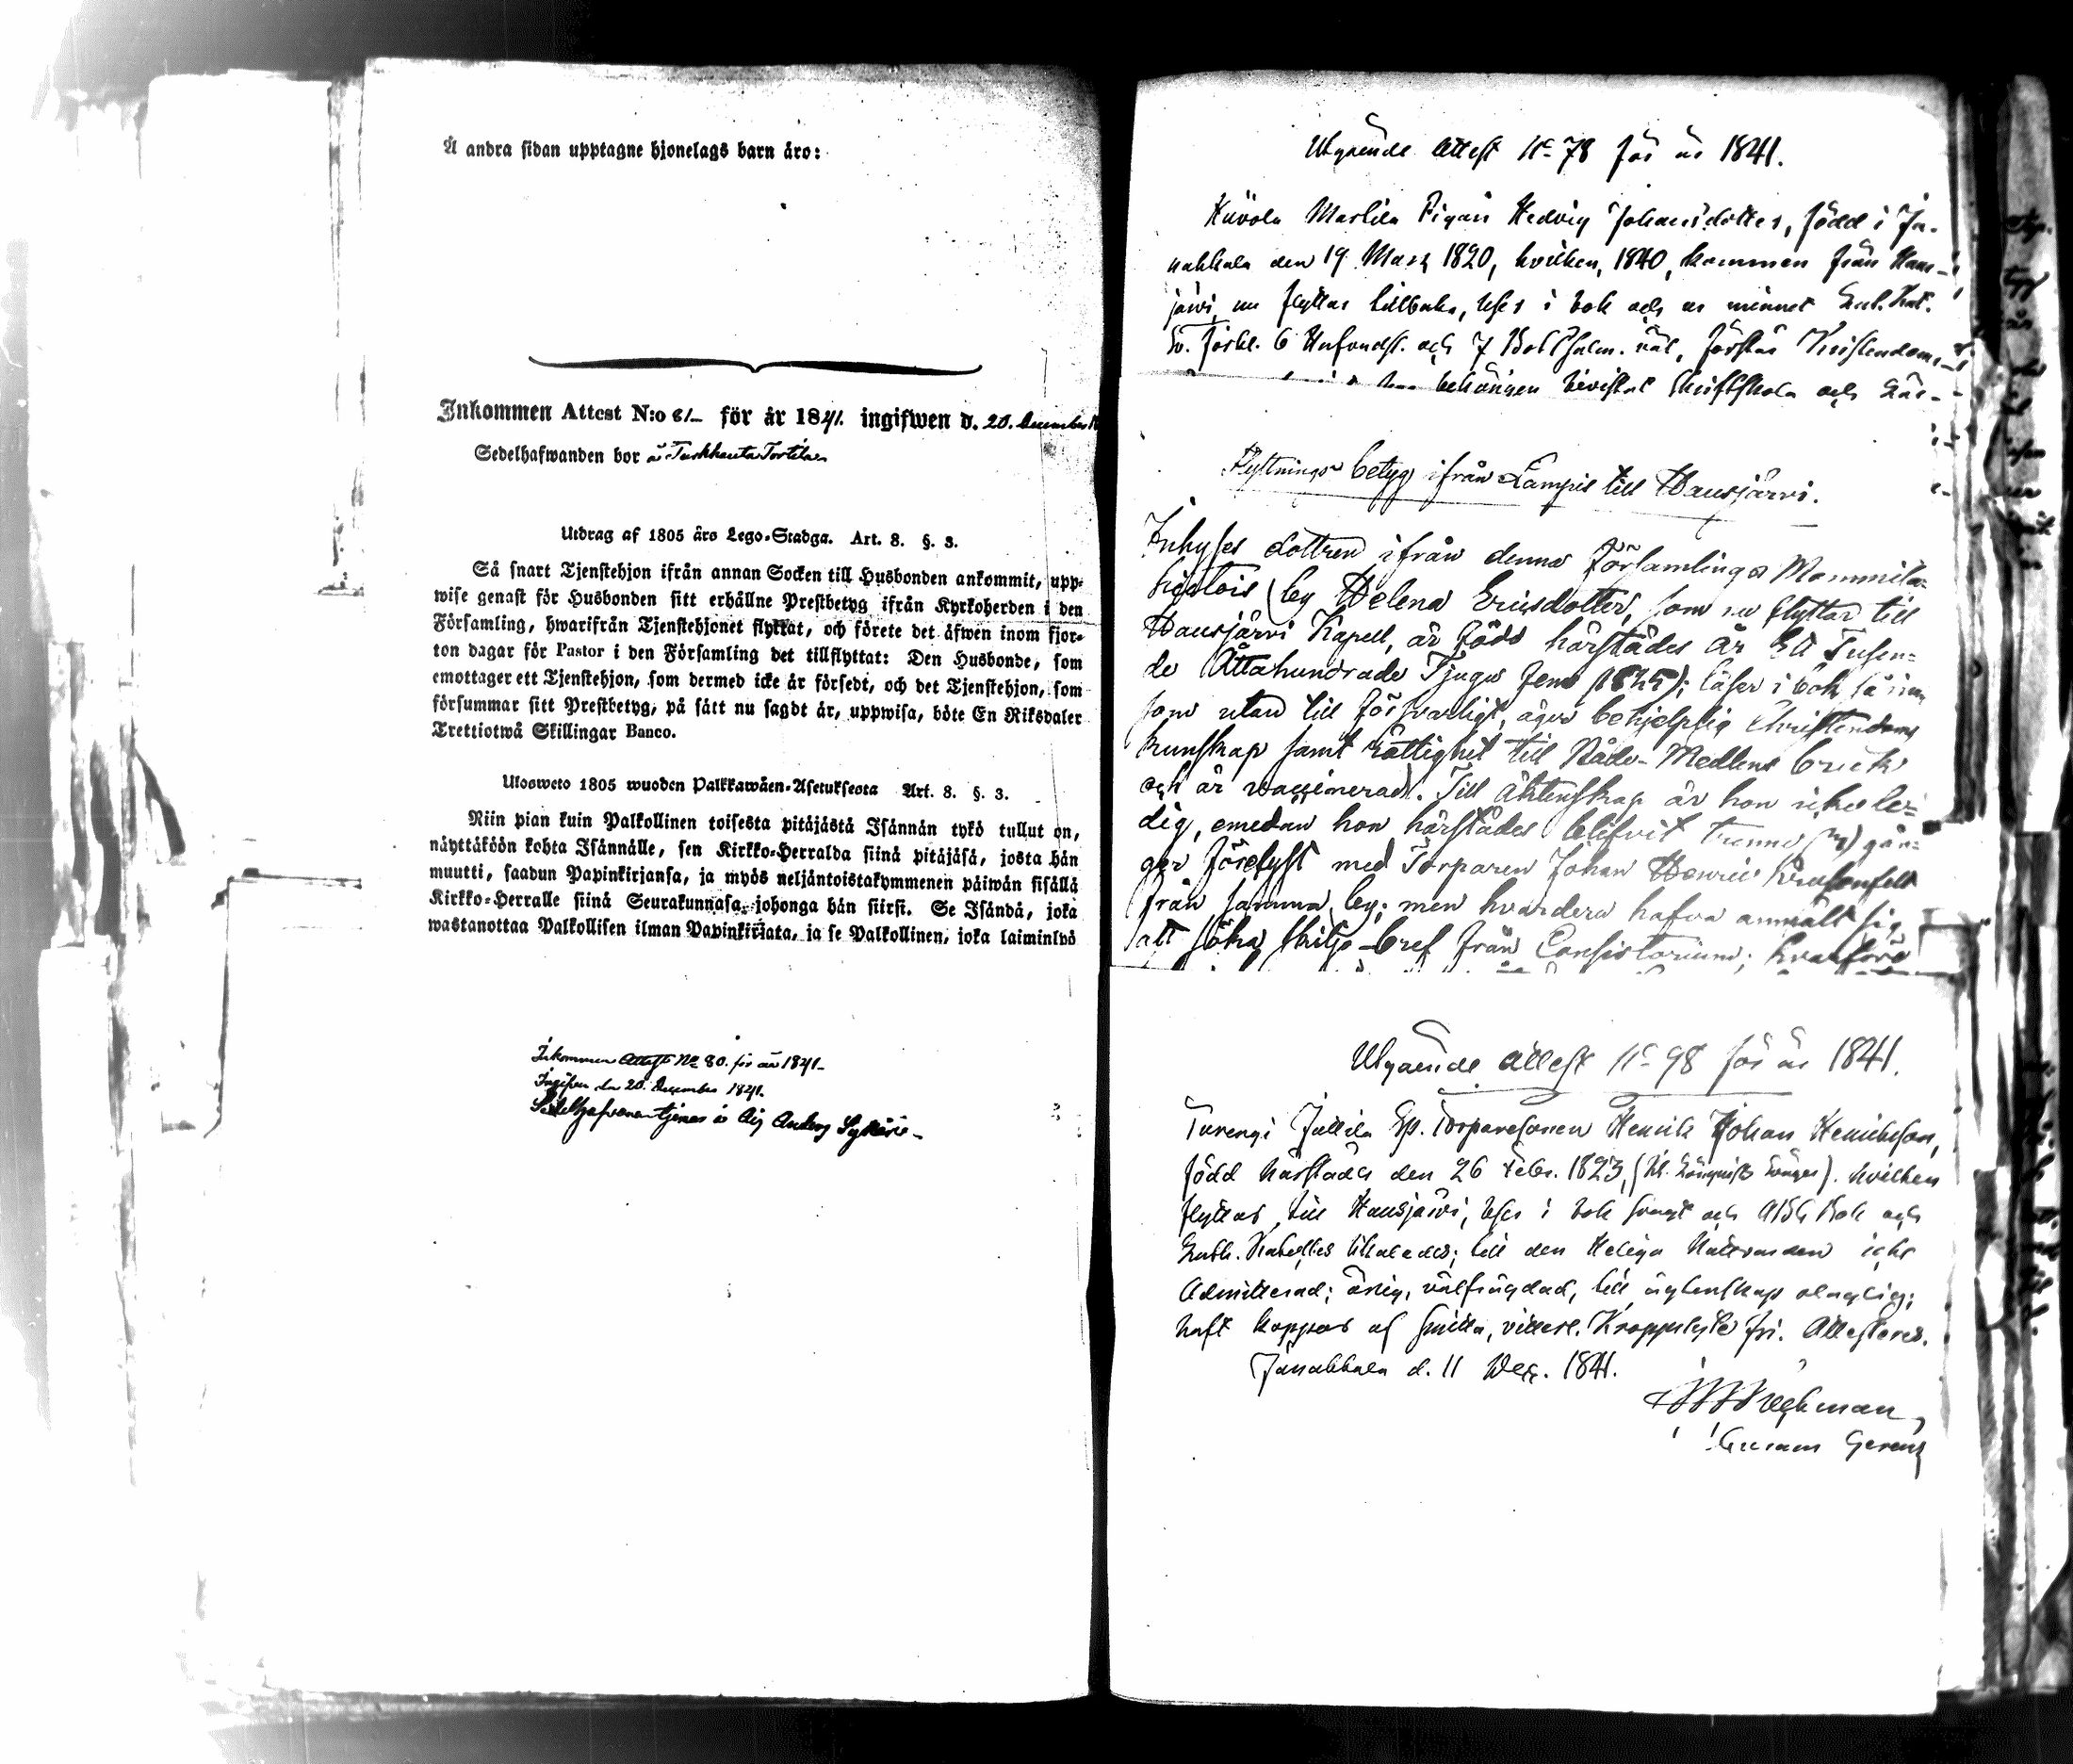 Å andra sidan upptagne hjonelags barn äro:
Inkommen Attest N:o 81 för år 1841. ingifwen d. 20. December
Sedelhafwanden bor å Turkhauta Torttila
Utdrag af 1805 års Lego-Stadga. Art. 8. §. 3.
Så snart Tjenstehjon ifrån annan Socken till Husbonden ankommit, upp-
wise genast för Husbonden sitt erhållne Prestbetyg ifrån Kyrkoherden i den
Församling, hwarifrån Tjenstehjonet flyttat, och förete det åfwen inom fjor-
ton dagar för Pastor i den Församling det tillflyttat: Den Husbonde, som
emottager ett Tjenstehjon, som dermed icke är försedt, och det Tjenstehjon, som
försummar sitt Prestbetyg, på sätt nu sagdt är, uppwisa, böte En Riksdaler
Trettiotwå Skillingar Banco.
Ulosweto 1805 wuoden Palkkawäen-Asetuksesta Art. 8. §. 3.
Niin pian kuin Palkollinen toisesta pitäjästä Isännän tykö tullut on,
näyttäköön kohta Isännälle, sen Kirkko-Herralda siinä pitäjäsä, josta hän
muutti, saadun Papinkirjansa, ja myös neljäntoistakymmenen päiwän sisällä
Kirkko-Herralle siinä Seurakunnasa, johonga hän siirsi. Se Isändä, joka
wastanottaa Palkollisen ilman Papinkirjata, ja se Palkollinen, joka laiminlyö
Inkommen Attest No 80. för år 1841.
Ingifven den 20. December 1841.
Sedelhafvanen tjenar å Anders
Utgående Attest No 78 för år 1841.
Marlila Pigan Hedvig Johansdotter, född i Ja-
nakkala den 19 Mars 1820, hvilken, 1840, kommen från Haus-
järvi, nu flyttar tillbaka, läser i bok och ur minnet Luth. Kat.
Sv. Förkl. 6 Hufvudst. och 7 Bot Psalm. väl, förstår Kristendoms-
behörigen bevistat Skriftskola och Läs-
Flyttnings betyg ifrån Lampis till Hausjärvi.
Inhyses dottren ifrån denna Församlings Mommila
by Helena Ericsdotter, som nu flyttar till
Hausjärvi Kapell, är född härstädes år Ett Tusen-
de Åttahundrade Tjugu fem (1825); läser i bok så
som utan till försvarligt, äger behjelplig Christendoms
kunskap samt rättighet till Nåde-Medlens bruk
och är vaccinerad. Till äktenskap är hon icke le-
dig, emedan hon härstädes blifvit trenne gån-
ger förelyst med Torparen Johan Henric
från samma by; men hvardera hafva anmält sig
att söka skiljo-bref från Consistorium; hvarföre
Utgående Attest No 98 för år 1841.
Turengi Jullila Sp. Torparesonen Henrik Johan Henriksson,
född härstädes den 26 Febr. 1823, hvilken
flyttar till Hausjärvi, läser i bok svagt och ABC Bok och
Luth. Kateches likaledes; till den Heliga Nattvarden icke
Admitterad; ärlig, välfrägdad, till äktenskap oduglig;
haft koppor af smitta, Kroppslyte fri. Attesteres.
Janakkala d. 11 Dec. 1841.